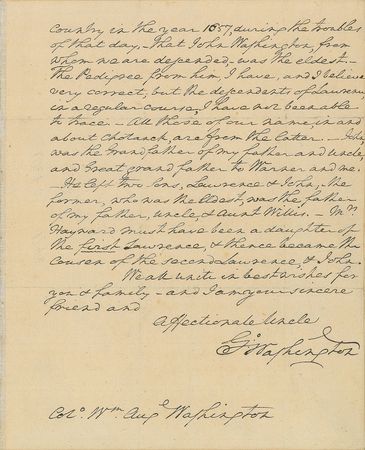 country in the year 1657, during the troubles
of that day. — That John Washington, from
whom we are depended, was the eldest. —
The Pedigree from him, I have, and I believe
very correct, but the dependents of Lawrence
in a regular course, I have not been able
to trace. — All those of our name, in and
about Chotanck, are from the latter. — John,
was the Grandfather of my father and uncle,
and Great grandfather to Warner and me.
— He left two Sons, Lawrence & John; the
former, who was the Eldest, was the father
of my father, uncle, & Aunt Willis. — Mrs
Hayward must have been a daughter of
the first Lawrence, & thence became the
cousen of the second Lawrence, & John.
We all unite in best wishes for
you & family — and I am your sincere
friend and
Affectionate Uncle
Go Washington
Colo. Wm. Auge Washington